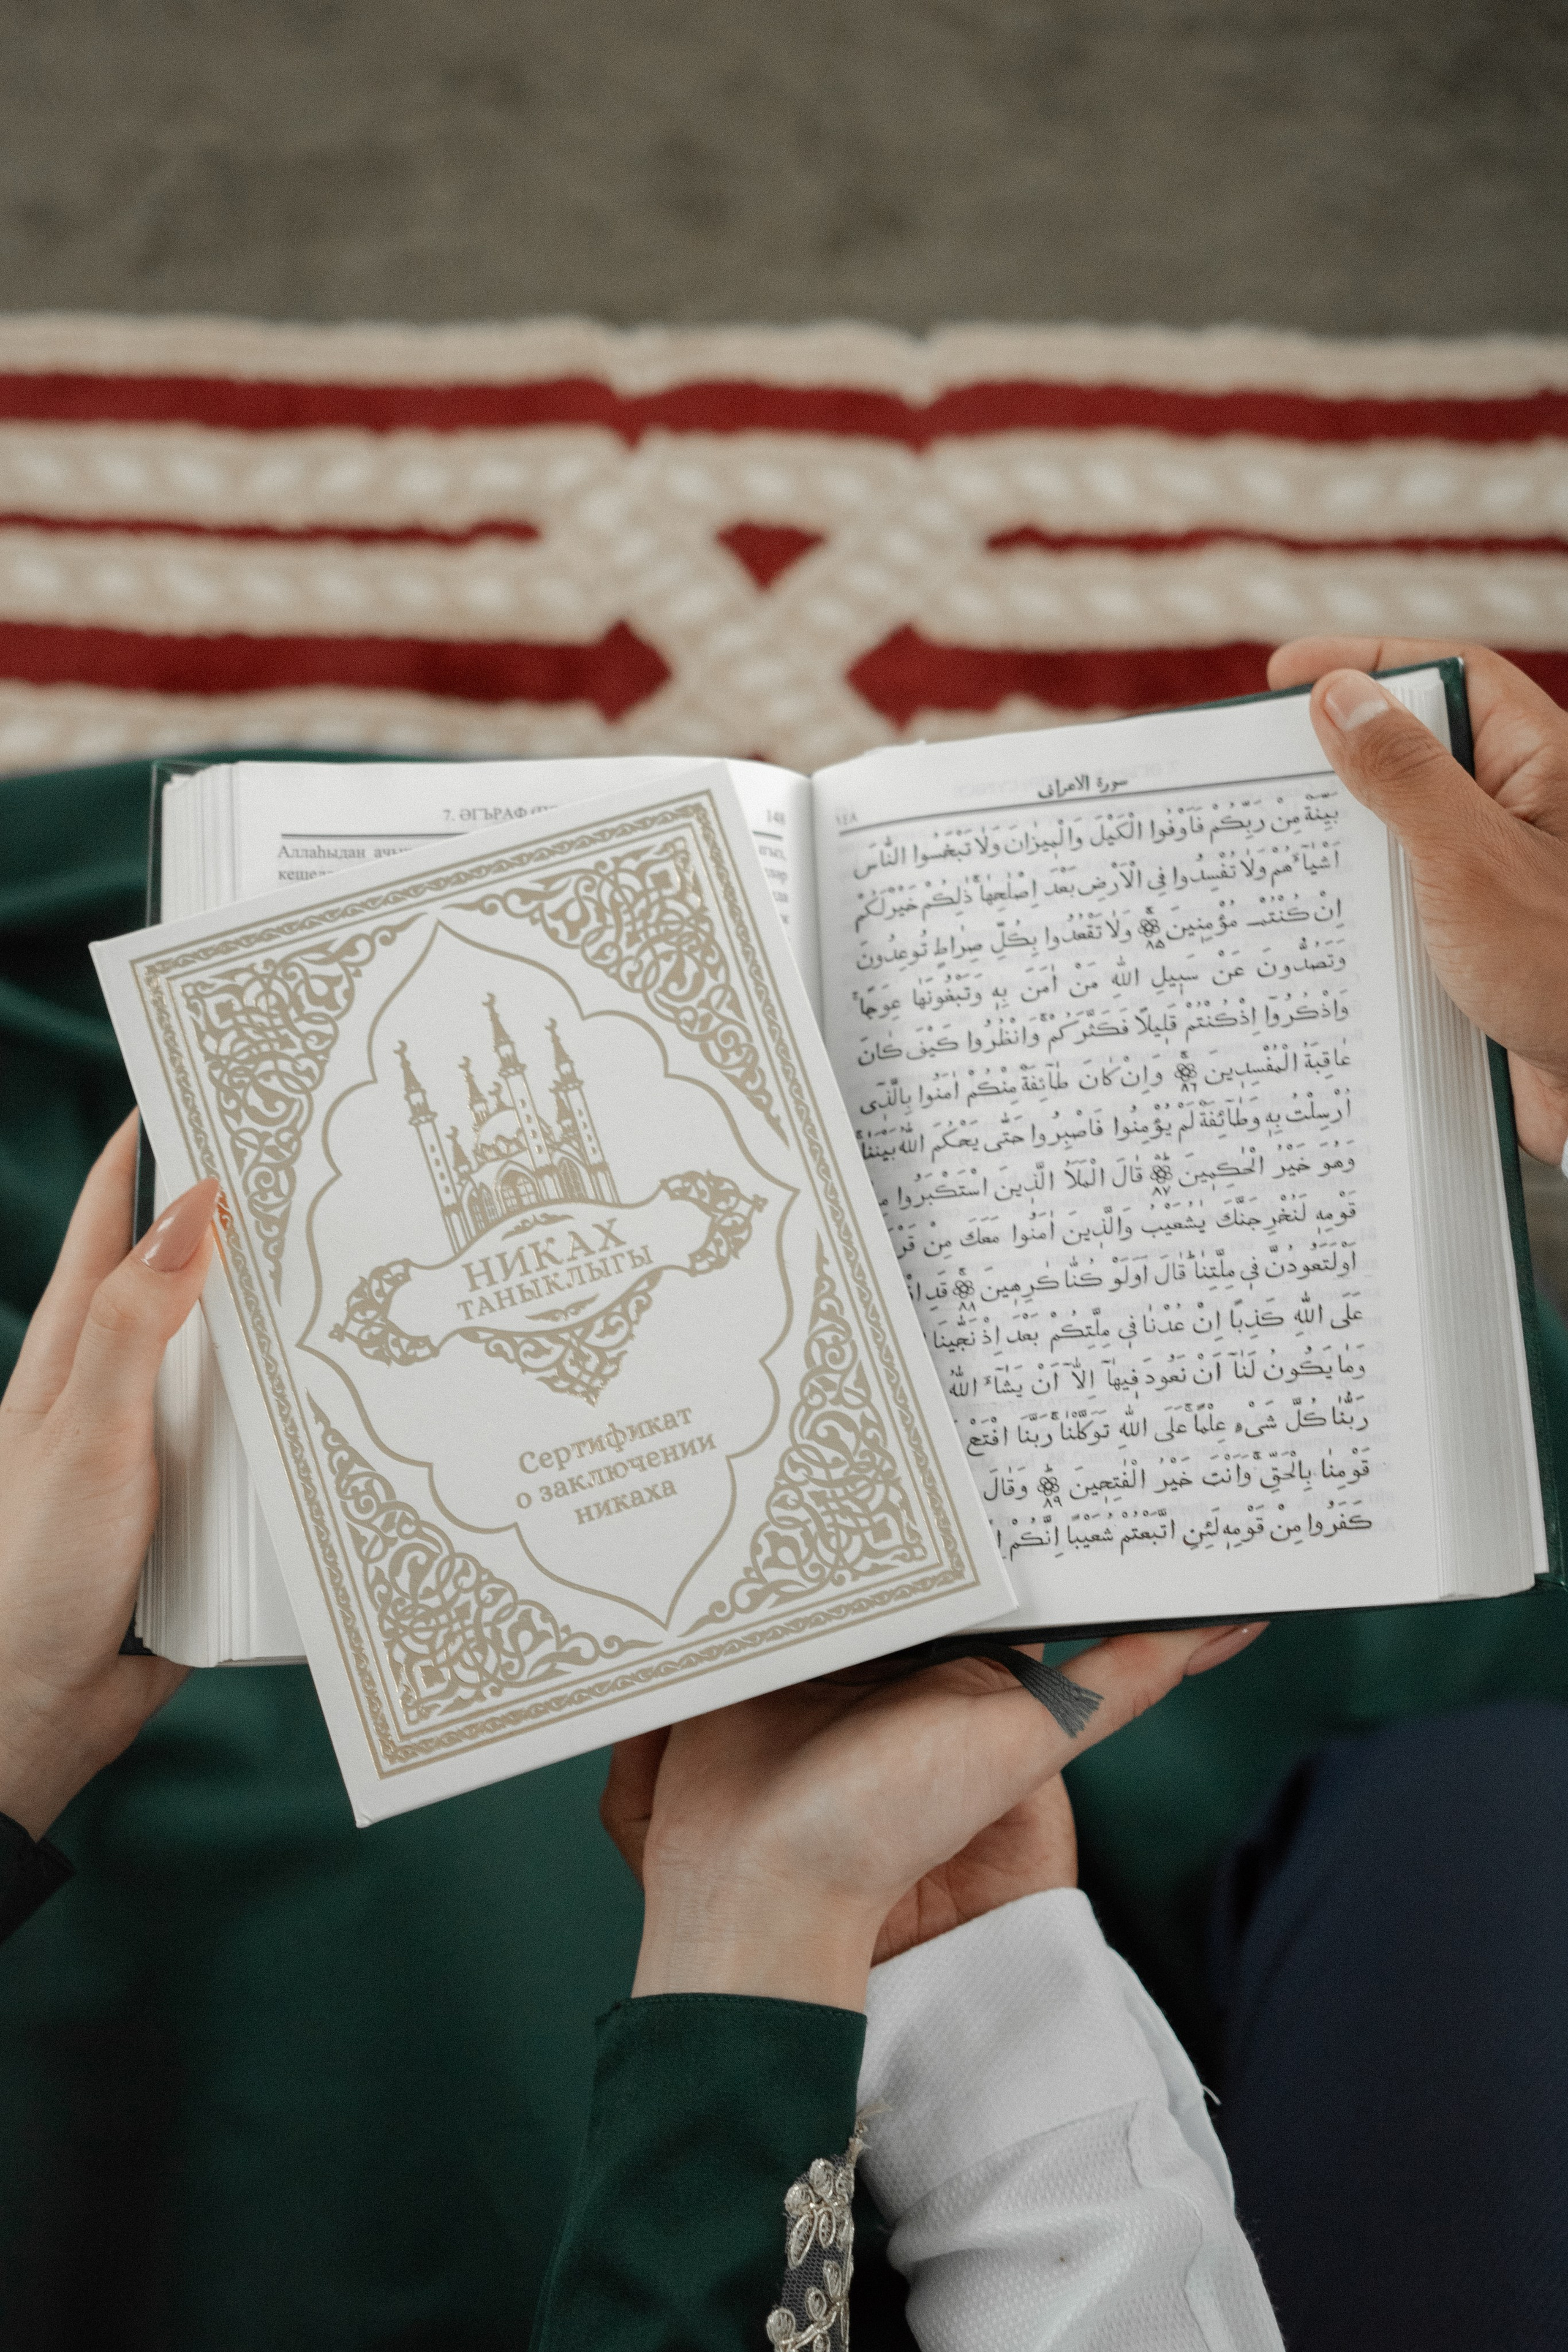 7. ӘГЪРАФ
148
Аллаһыдан
НИКАХ
ТАНЫКЛЫГЫ
Сертификат
о заключении
никаха
سورة الاعراف
١٤٨
بَيِّنَةٌ مِنْ رَبِّكُمْ فَاَوْفُوا الْكَيْلَ وَالْمِيزَانَ وَلَا تَبْخَسُوا النَّاسَ
اَشْيَاۤءَهُمْ وَلَا تُفْسِدُوا فِي الْاَرْضِ بَعْدَ اِصْلَاحِهَا ذٰلِكُمْ خَيْرٌ لَكُمْ
اِنْ كُنْتُمْ مُؤْمِنِينَ ٨٥ وَلَا تَقْعُدُوا بِكُلِّ صِرَاطٍ تُوعِدُونَ
وَتَصُدُّونَ عَنْ سَبِيلِ اللّٰهِ مَنْ اٰمَنَ بِهِ وَتَبْغُونَهَا عِوَجًا
وَاذْكُرُوا اِذْ كُنْتُمْ قَلِيلًا فَكَثَّرَكُمْ وَانْظُرُوا كَيْفَ كَانَ
عَاقِبَةُ الْمُفْسِدِينَ ٨٦ وَاِنْ كَانَ طَاۤئِفَةٌ مِنْكُمْ اٰمَنُوا بِالَّذِى
اُرْسِلْتُ بِهِ وَطَاۤئِفَةٌ لَمْ يُؤْمِنُوا فَاصْبِرُوا حَتّٰى يَحْكُمَ اللّٰهُ بَيْنَنَا
وَهُوَ خَيْرُ الْحٰكِمِينَ ٨٧ قَالَ الْمَلَاُ الَّذِينَ اسْتَكْبَرُوا
قَوْمِهِ لَنُخْرِجَنَّكَ يٰشُعَيْبُ وَالَّذِينَ اٰمَنُوا مَعَكَ مِنْ
اَوْ لَتَعُودُنَّ فِي مِلَّتِنَا قَالَ اَوَلَوْ كُنَّا كَارِهِينَ ٨٨ قَدِ
عَلَى اللّٰهِ كَذِبًا اِنْ عُدْنَا فِي مِلَّتِكُمْ بَعْدَ اِذْ نَجّٰينَا
وَمَا يَكُونُ لَنَا اَنْ نَعُودَ فِيهَا اِلَّا اَنْ يَشَاۤءَ اللّٰهُ
رَبُّنَا كُلَّ شَيْءٍ عِلْمًا عَلَى اللّٰهِ تَوَكَّلْنَا رَبَّنَا افْتَحْ
قَوْمِنَا بِالْحَقِّ وَاَنْتَ خَيْرُ الْفَاتِحِينَ ٨٩ وَقَالَ
كَفَرُوا مِنْ قَوْمِهِ لَئِنِ اتَّبَعْتُمْ شُعَيْبًا اِنَّكُمْ